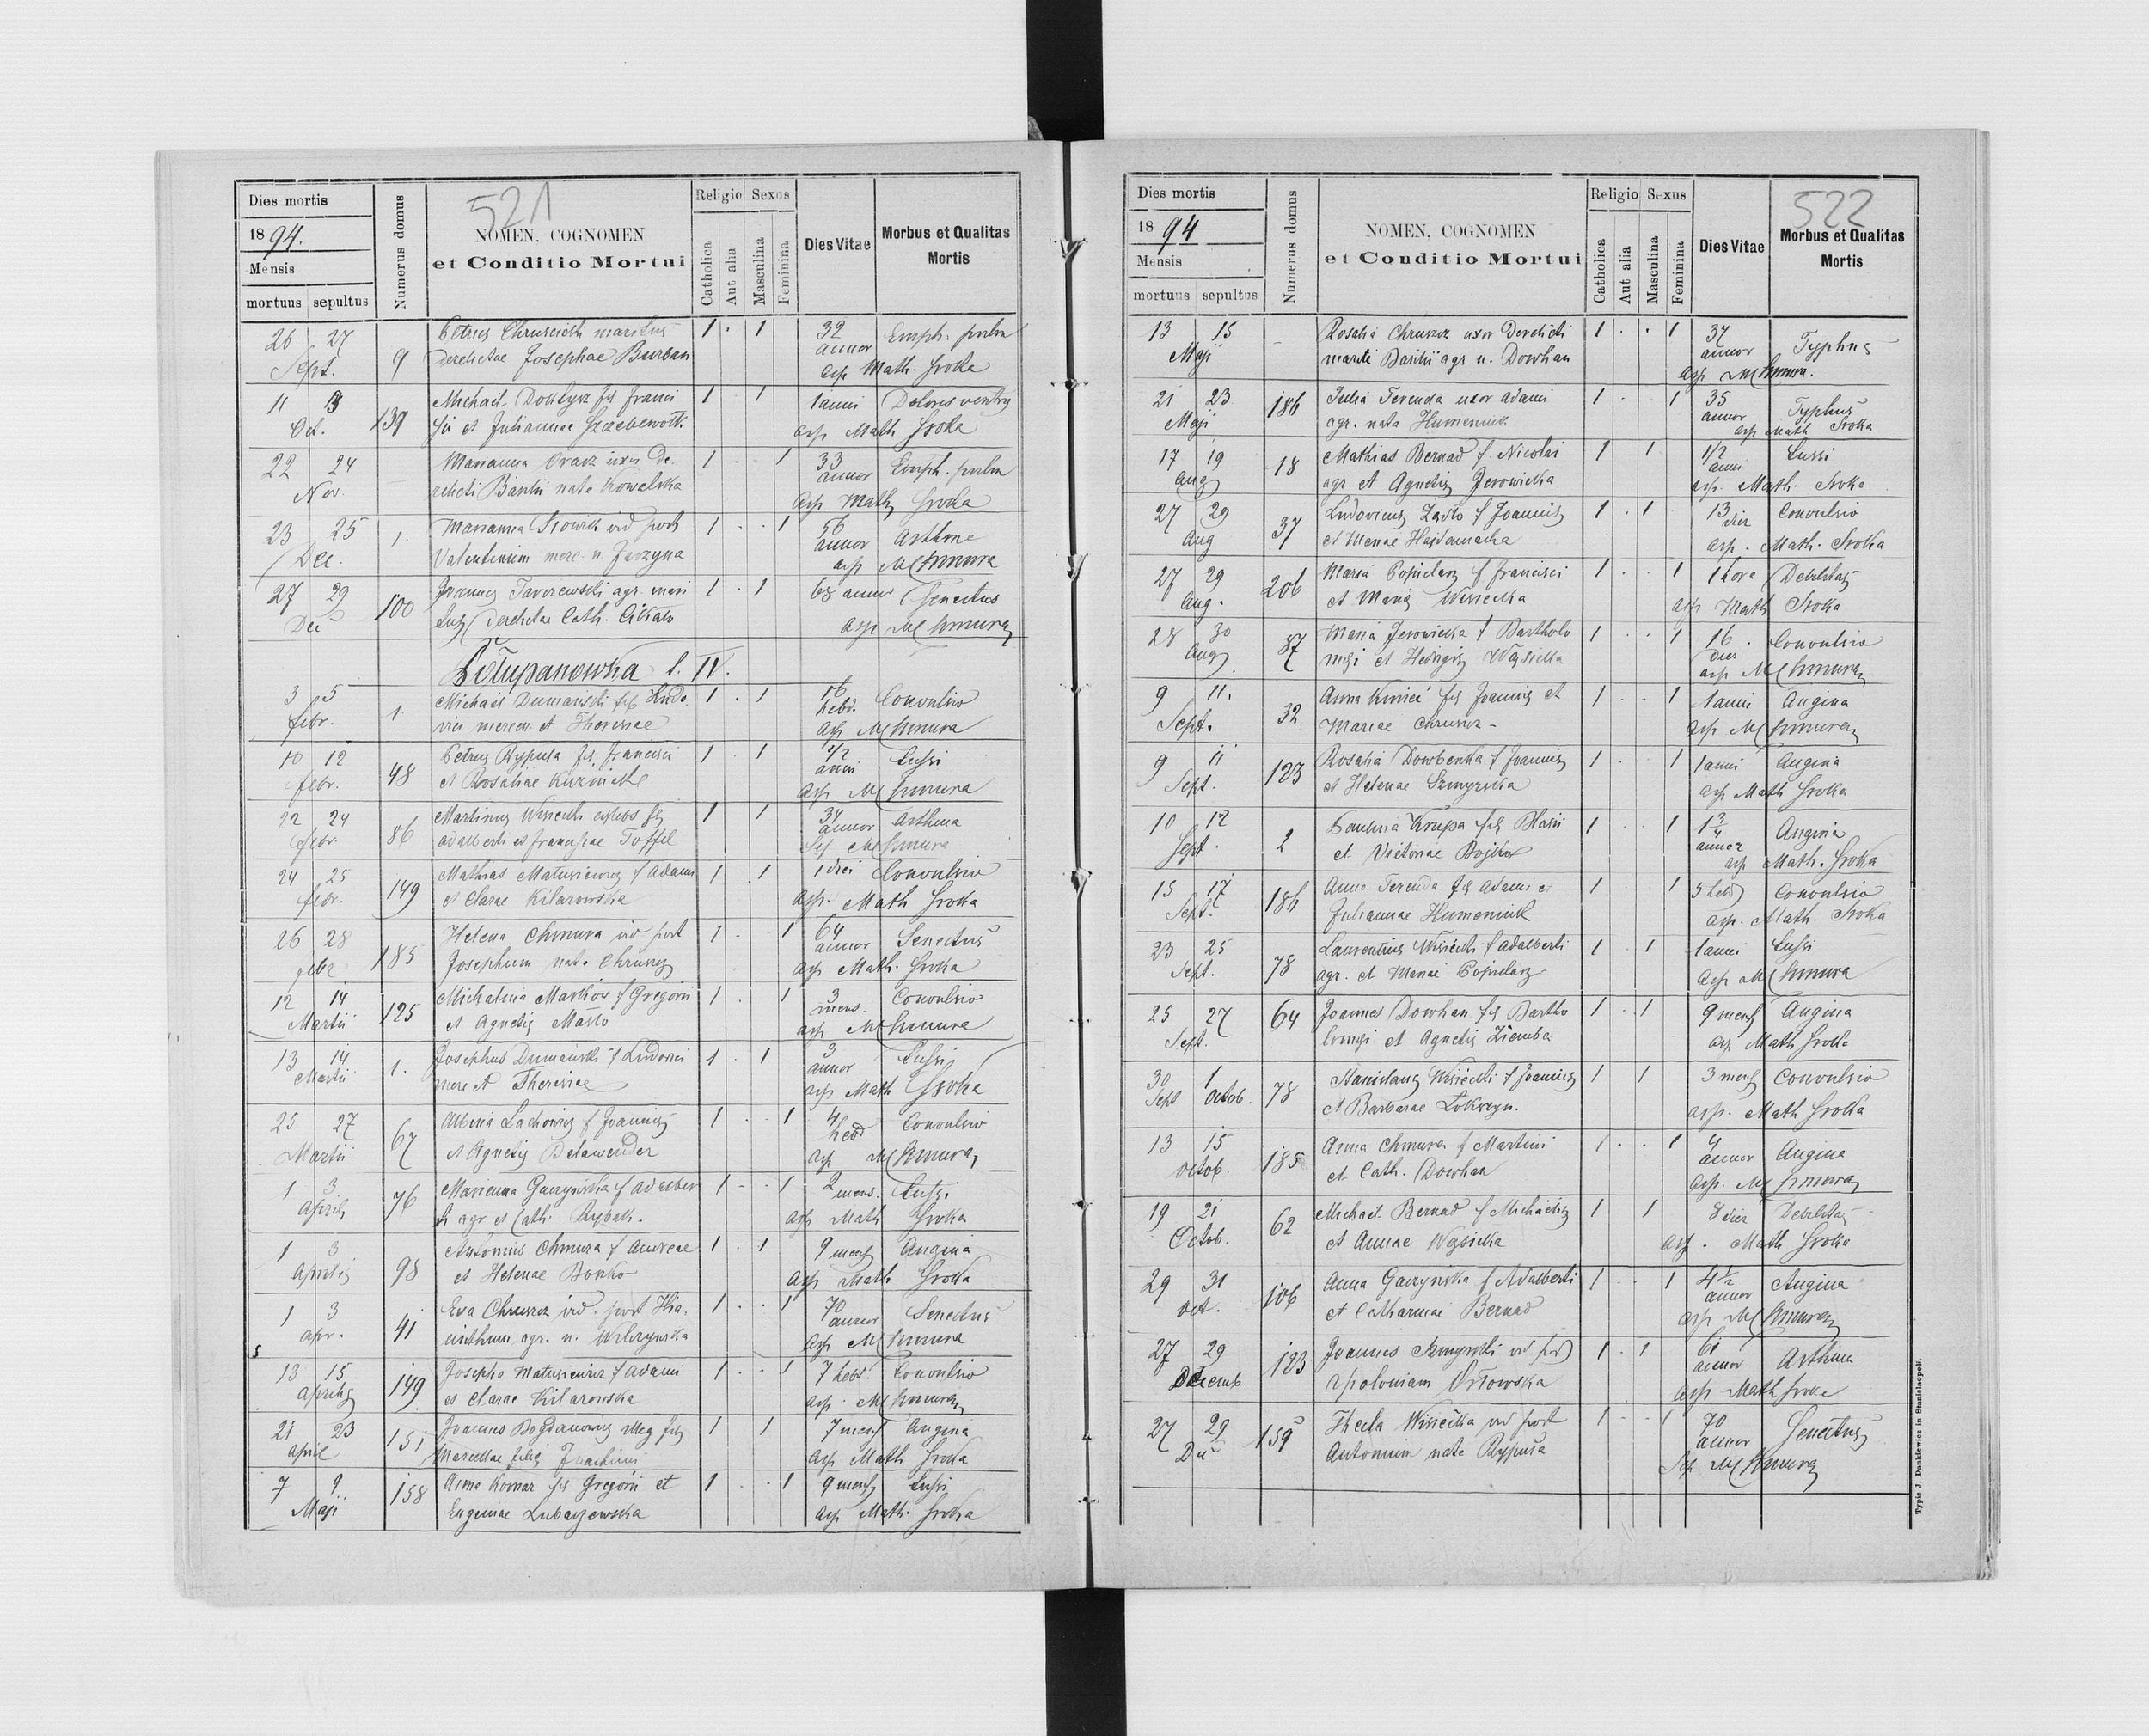 521
Dies mortis
1894.
Mensis
mortuus sepultus
Numerus domus
NOMEN, COGNOMEN
et Conditio Mortui
Religio Sexus
Catholica
Aut alia
Masculina
Feminina
Dies Vitae
Morbus et Qualitas
Mortis
26 27 Petrus maritus 1 . 1 32 Emph. pulm
Sept. 9 derelictae Josephae Burban annor
asp Math. Sroka
11 13 Michael fil Franci 1 1 1 anni Dolores ventris
Oct. 139 sci et Julianae asp Math Sroka
22 24 Marianna uxor de- 1 . 1 33 Emph. pulm
Nov. relicti Basilii nata Kowalska annor
asp Math Sroka
23 25 1. Marianna vid post 1 . . 1 56 Asthme
Dec. Valentinum merc. n. Jarzyna annor
asp M Chmura
27 29 100 Joannes agr. mari 1 . 1 68 annor Senectus
Dec tus derelictae Cath. asp M Chmura
Sołupanowka l. IV.
3 5 1. Michael Dumański fil Ludo- 1 . 1 16 Convulsio
febr. vici mercen. et Theresiae hebd.
asp M Chmura
10 12 48 Petrus Rypuła fil. Francisci 1 . 1 1/2 Tussi
febr. et Rosaliae anni
asp M Chmura
22 24 86 Martinus Wisiecki caelebs fil 1 1 34 Asthma
febr. Adalberti et Franciscae Toffel annor
M Chmura
24 25 149 Mathias Matusiewicz f Adami 1 . 1 1 diei Convulsio
febr. et Clarae Kilarowska asp. Math Sroka
26 28 185 Helena Chmura vid post 1 . 1 64 Senectus
febr Josephum nata Chruszcz annor
asp Math. Sroka
12 14 125 Michalina Markos f Gregorii 1 . 1 3 Convulsio
Martii et Agnetis Masło mens.
asp M Chmura
13 14 1. Josephus Dumański f Ludovici 1 . 1 3 Tussi
Martii merc et Theresiae annor
asp Math Sroka
25 27 67 Albina Lachowicz f Joannis 1 . . 1 4 Convulsio
Martii et Agnetis Belawender hebd
asp M Chmura
1 3 76 Marianna Garzyńska f Adalber 1 - . 1 2 mens. Tussi
Aprilis ti agr et Cath. Rybak. asp Math Sroka
1 3 98 Antonius Chmura f Andreae 1 . 1 9 mens Angina
Aprilis et Helenae Bonko asp Math Sroka
1 3 41 Eva Chruszcz vid. post Hia- 1 . . 1 70 Senectus
apr. cinthum agr. n. Wilczyńska annor
asp M Chmura
13 15 149 Josepha Matusiewicz f Adami 1 . . 1 7 hebd. Convulsio
Aprilis et Clarae Kilarowska asp. M Chmura
21 23 151 Joannes Bogdanowicz illeg fil 1 1 7 mens Angina
April Marcellae filiae Joachimi asp Math Sroka
7 9 158 Anna Komar fil Gregorii et 1 . . 1 9 mens Tussi
Maji Eugeniae Lubaszewska asp Math. Sroka
522
Dies mortis
1894
Mensis
mortuus sepultus
Numerus domus
NOMEN, COGNOMEN
et Conditio Mortui
Religio Sexus
Catholica
Aut alia
Masculina
Feminina
Dies Vitae
Morbus et Qualitas
Mortis
13 15 - Rosalia Chruszcz uxor derelicti 1 . . 1 37 Typhus
Maji mariti Basilii agr n. Dowhan annor
asp M Chmura.
21 23 186 Julia Terenda uxor Adami 1 . 1 35 Typhus
Maji agr. nata Humeniuk annor
asp Math Sroka
17 19 18 Mathias Bernad f. Nicolai 1 1 1/2 Tussi
Aug agr. et Agnetis Jerowicka anni
asp. Math. Sroka
27 29 37 Ludovicus f Joannis 1 . 1 13 dier Convulsio
Aug et Mariae Hajdamacha asp. Math. Sroka
27 29 206 Maria Popielarz f Francisci 1 . . 1 1 hora Debilitas
Aug. et Maria Wisiecka asp Math Sroka
28 30 87 Maria Jerowicka f Bartholo 1 . . 1 16 . Convulsio
Aug maei et Hedvigis Wąsicka dier
asp M Chmura
9 11. 32 Anna fil Joannis et 1 . . 1 1 anni Angina
Sept. Mariae Chruszcz - asp M Chmura
9 11 123 Rosalia Dowbenka f Joannis 1 1 1 anni Angina
Sept. et Helenae Szmyrska asp Math Sroka
10 12 2 Paulina Krupa fil Blasii 1 . 1 1 3/4 Angina
Sept. et Victoriae Bojko annor
asp Math. Sroka
15 17 186 Anna Terenda fil Adami et 1 1 5 hebd Convulsio
Sept. Julianae Humeniuk asp. Math. Sroka
23 25 78 Laurentius Wisiecki f Adalberti 1 . 1 1 anni Tussi
Sept. agr. et Mariae Popielarz asp M Chmura
25 27 64 Joannes Dowhan fil Bartho 1 . 1 9 mens Angina
Sept. lomei et Agnetis Ziemba asp Math Sroka
30 1 78 Stanislaus Wisiecki f Joannis 1 1 3 mens Convulsio
Sept Octob. et Barbarae asp. Math Sroka
13 15 185 Anna Chmura f Martini 1 . . 1 4 Angina
Octob. et Cath. Dowhan annor
asp. M Chmura
19 21 62 Michael Bernad f Michaelis 1 1 8 dier Debilitas
Octob. et Annae Wąsicka asp. Math Sroka
29 31 106 Anna Garzyńska f Adalberti 1 . 1 4 1/2 Angina
Oct. et Catharinae Bernad annor
asp M Chmura
27 29 123 Joannes Szmyrski vid post 1 . 1 61 Asthma
Decemb Apoloniam Orłowska annor
asp Math Sroka
27 29 159 Thecla Wisiecka vid post 1 - . 1 70 Senectus
Dec Antonium nata Rypuła annor
M Chmura
Typis J. Dankiewicz in Stanislaopoli.